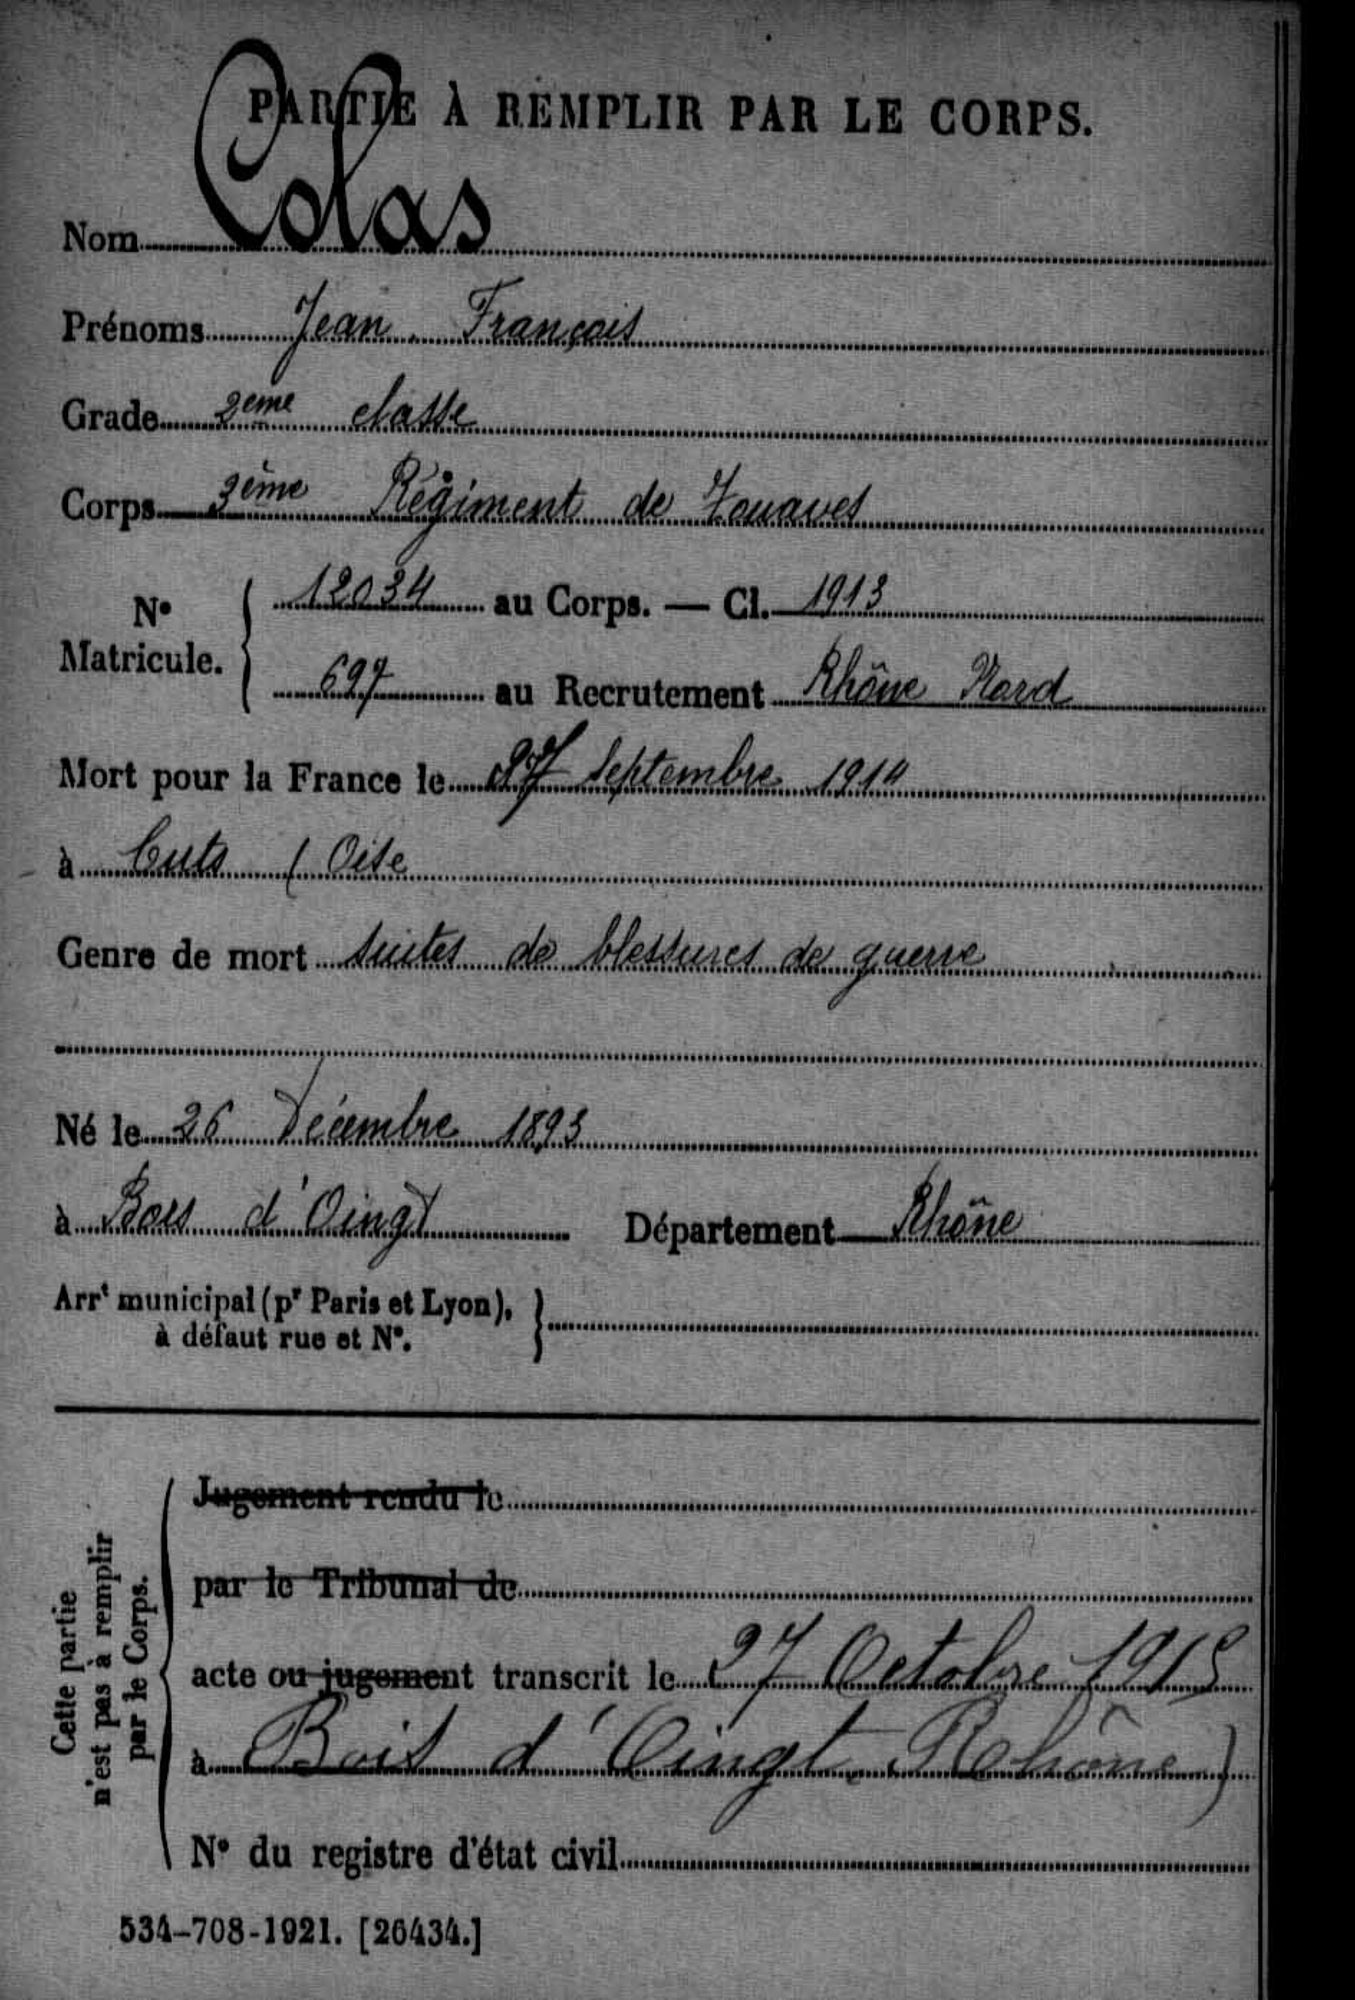 PARTIE À REMPLIR PAR LE CORPS.
Nom Colas
Prénoms Jean François
Grade 2eme classe
Corps 3ème Régiment de Zouaves
N° Matricule. { 12034 au Corps. — Cl. 1913
697 au Recrutement Rhône Nord
Mort pour la France le 27 Septembre 1914
à Cuts ( Oise
Genre de mort suites de blessures de guerre
Né le 26 Décembre 1893
à Bois d'Oingt Département Rhône
Arrt municipal (pr Paris et Lyon), à défaut rue et N°. }
Cette partie n'est pas à remplir par le Corps.
Jugement rendu le
par le Tribunal de
acte ou jugement transcrit le 27 Octobre 1915
à Bois d'Oingt Rhône)
N° du registre d'état civil
534-708-1921. [26434.]